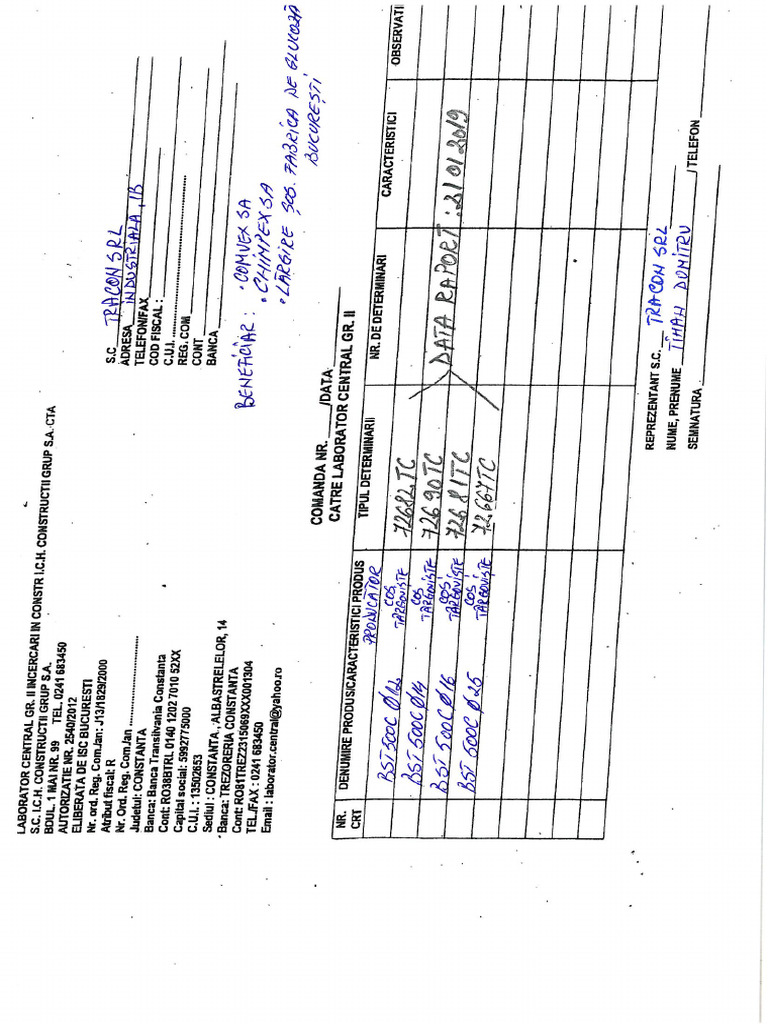 LABORATOR CENTRAL GR. II INCERCARI IN CONSTR I.C.H. CONSTRUCTII GRUP S.A. CTA
S.C. I.C.H. CONSTRUCTII GRUP S.A.
BDUL. 1 MAI NR. 99 TEL. 0241 683450
AUTORIZATIE NR. 2540/2012
ELIBERATA DE ISC BUCURESTI
Nr. ord, Reg. Com.Jan: J13/1829/2000
Atribut fiscal: R
Nr. Ord. Reg. Com.Jan
Judetul: CONSTANTA
Banca: Banca Transilvania Constanta
Cont: RO38BTRL 0140 1202 7010 52XX
Capital social: 5992775000
C.U.I. : 13502653
Sediul : CONSTANTA, ALBASTRELELOR, 14
Banca: TREZORERIA CONSTANTA
Cont: RO81TREZ2315069XXX001304
TEL./FAX : 0241 683450
Email : laborator.central@yahoo.ro
S.C TRACON SRL
ADRESA INDUSTRIALA, 1B
TELEFON/FAX
COD FISCAL :
C.U.I.
REG. COM
CONT
BANCA
BENEFICIAR : • COMVEX SA
• CHIMPEX SA
• LĂRGIRE ȘOS. FABRICA DE GLUCOZĂ
BUCUREȘTI
COMANDA NR. /DATA
CATRE LABORATOR CENTRAL GR. II
NR. CRT DENUMIRE PRODUS/CARACTERISTICI PRODUS TIPUL DETERMINARII NR. DE DETERMINARI CARACTERISTICI OBSERVATII
PRODUCĂTOR
BST 500C Ø 12 COS TARGOVIȘTE 72682 TC
BST 500C Ø 14 COS TARGOVIȘTE 72690 TC
BST 500C Ø 16 COS TARGOVIȘTE 72681 TC
BST 500C Ø 25 COS TARGOVIȘTE 72667 TC
DATA RAPORT : 21/01/2019
REPREZENTANT S.C. TRACON SRL
NUME, PRENUME DUMITRU
SEMNATURA / TELEFON